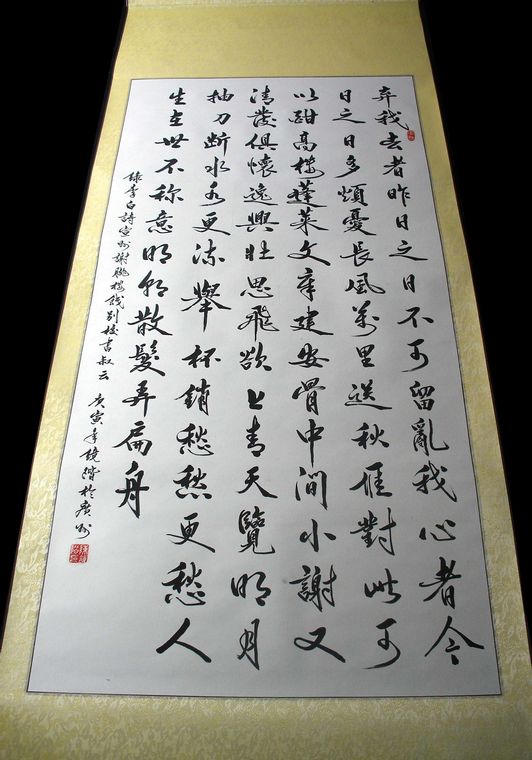 弃我去者昨日之日不可留亂我心者今
日之日多煩憂長風萬里送秋雁對此可
以酣高樓蓬萊文章建安骨中間小謝又
清發俱懷逸興壯思飛欲上青天覽明月
抽刀断水水更流舉杯銷愁愁更愁人
生在世不称意明朝散髮弄扁舟
錄李白詩宣州謝朓樓餞別校书叔云 庚寅年於廣州